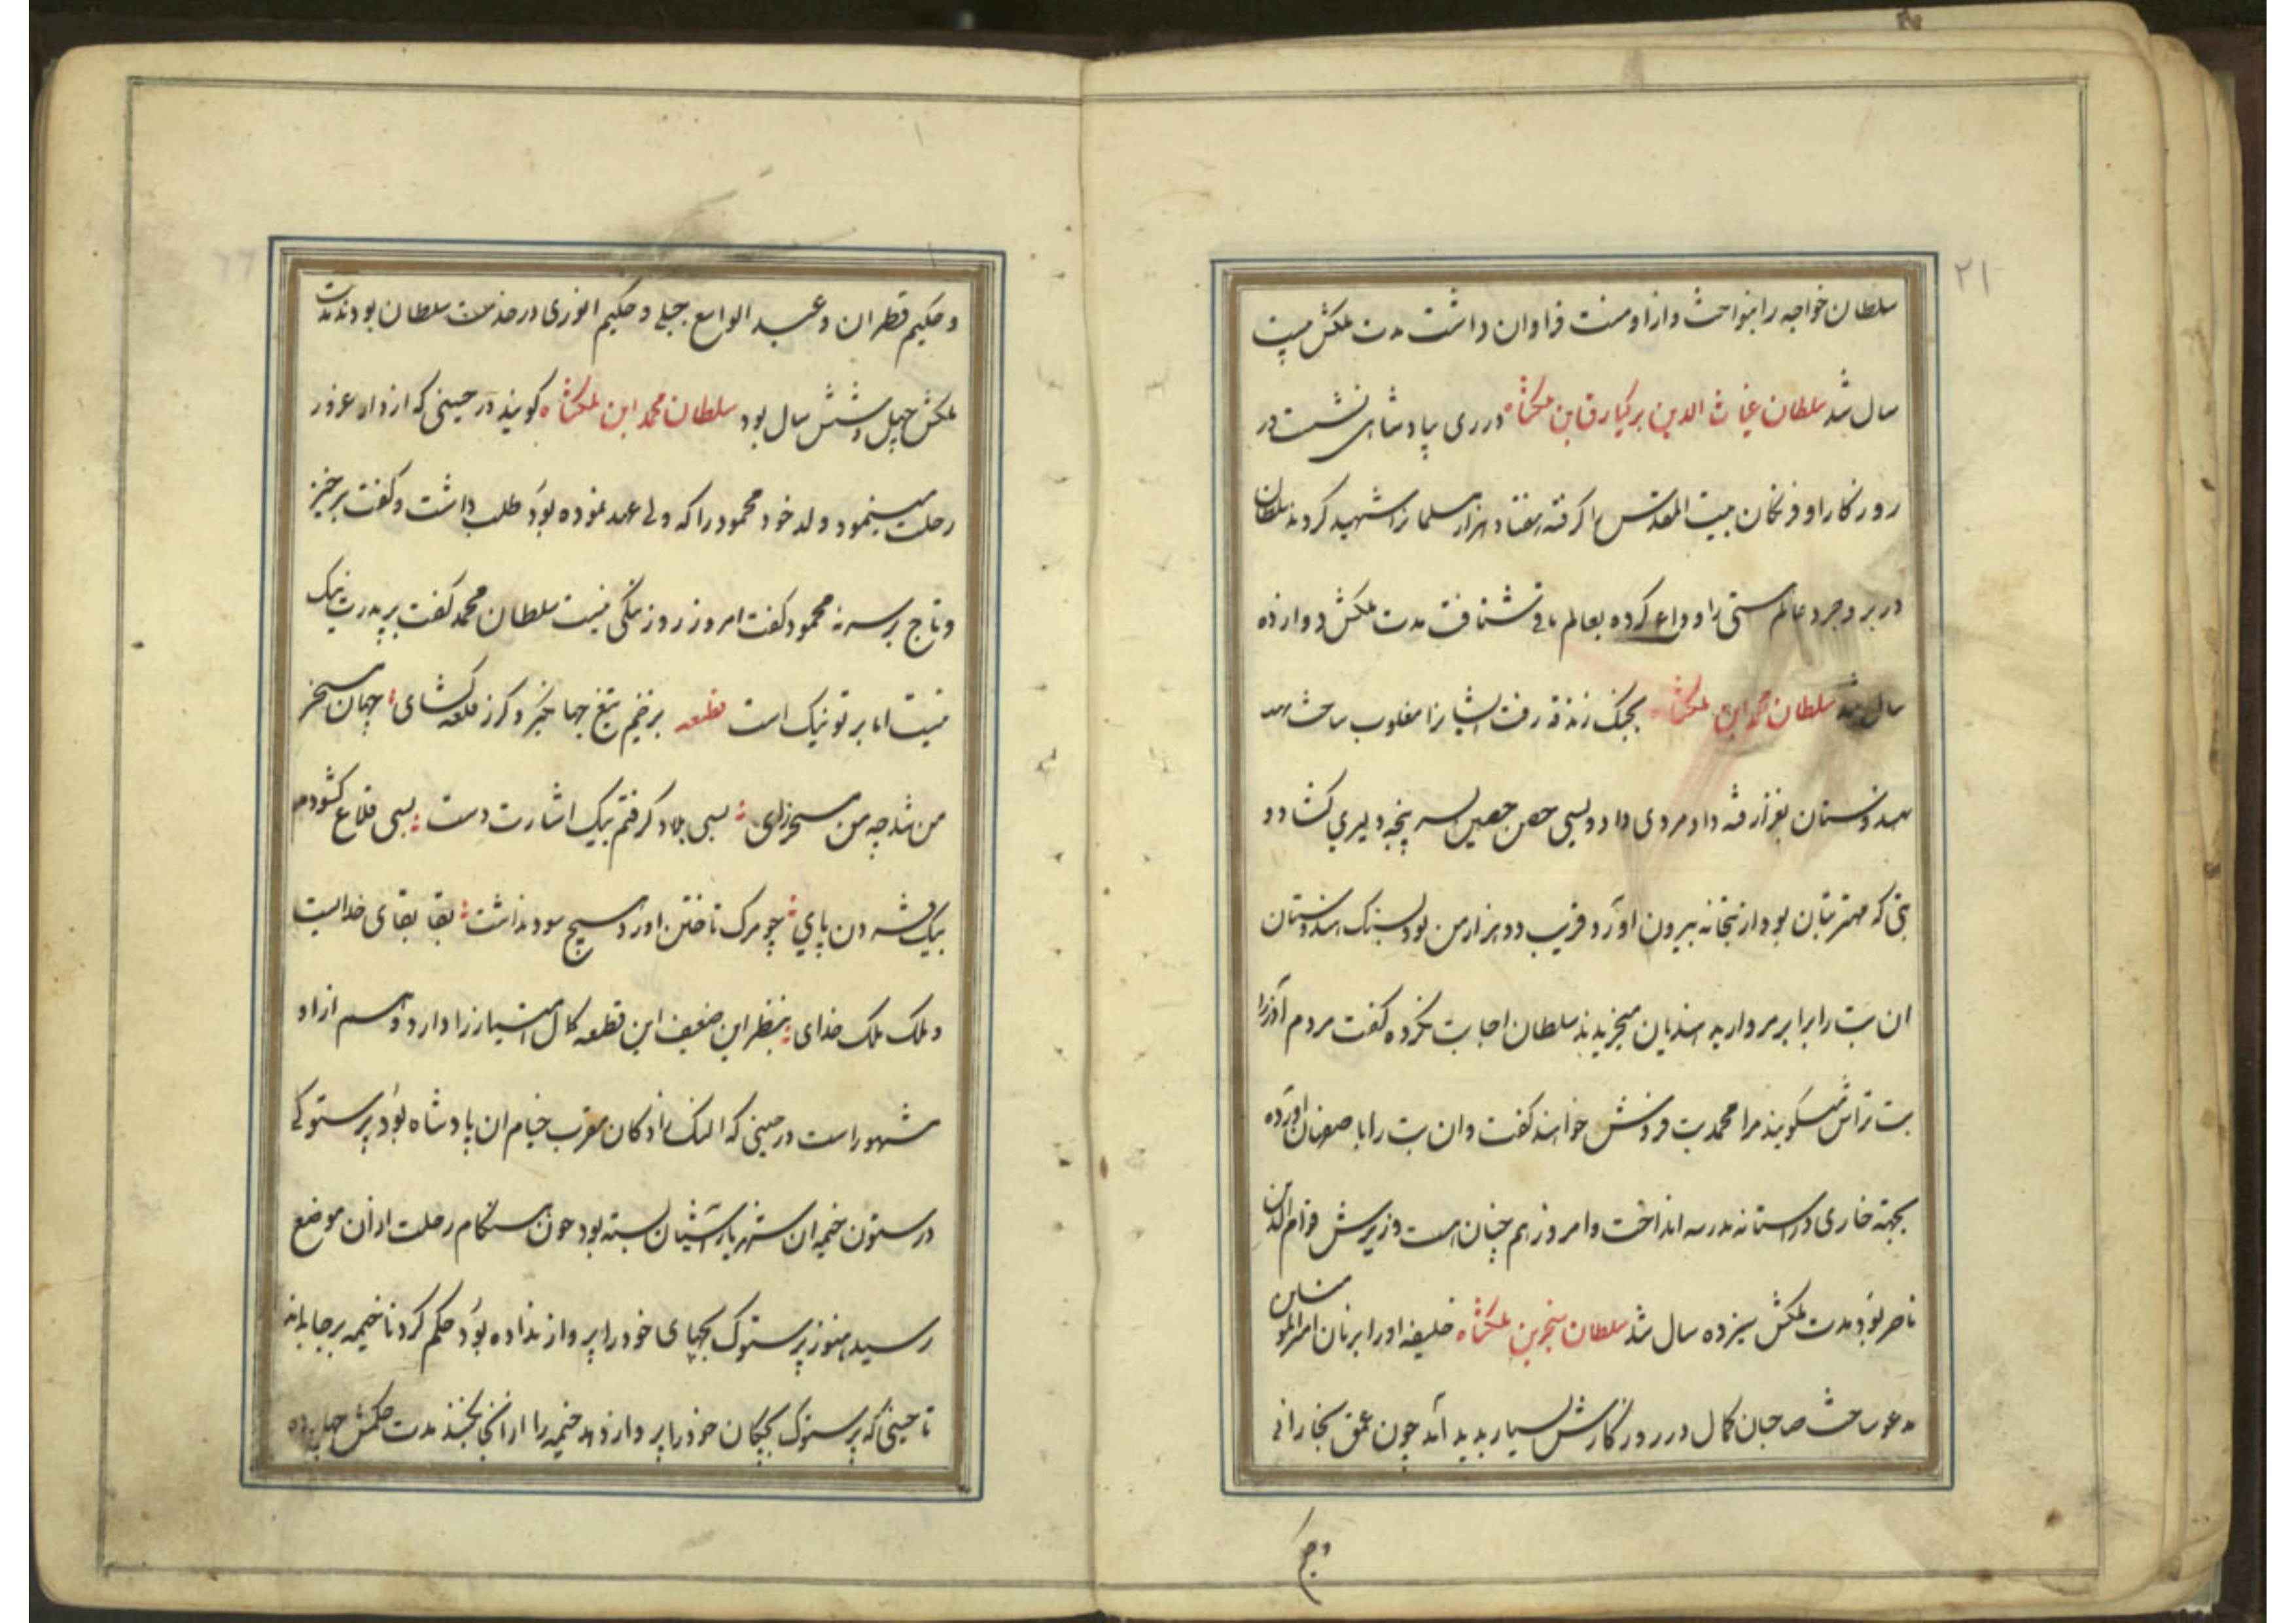 ۲۱
سلطان خواجه را بنواخت و ازو منت فراوان داشت مدت ملکش بیست
سال شد سلطان غیاث الدین برکیارق ابن ملکشاه در ری بپادشاهی نشست در
روزکار او فرنکان بیت المقدس را کرفته هفتاد هزار مسلمانرا شهید کردند سلطان
در بروجرد عالم هستی را وداع کرده بعالم باقی شتافت مدت ملکش دوازده
سال شد سلطان محمد ابن ملکشاه بجنک زنادقه رفت ایشانرا مغلوب ساخت بعد
بهندوستان بغزا رفته داد مردی داد و بسی حصن حصین بسر پنجه دلیری کشاد و
بتی که مهتر بتان بود از بتخانه بیرون آورد قریب دو هزار من بود بسنک هندوستان
ان بت را برابر مروارید هندیان میخریدند سلطان اجابت نکرده کفت مردم آذر را
بت تراش میکویند مرا محمد بت فروش خواهند کفت و ان بت را باصفهان آورده
بجهته خواری در آستانه مدرسه انداخت و امروز هم چنان هست وزیرش قوام الدین
ناصر بود مدت ملکش سیزده سال شد سلطان سنجر بن ملکشاه خلیفه او را برهان امیر المومنین
مدعو ساخت صاحبان کمال در روزکارش بسیار بدید آمد چون عمعق بخارائی
و حکیم
۲۲
و حکیم قطران و عبد الواسع جبلی و حکیم انوری در خدمت سلطان بودند مدت
ملکش چهل و شش سال بود سلطان محمد ابن ملکشاه کویند در حینی که از دار غرور
رحلت مینمود ولد خود محمود را که ولی عهد نموده بود طلب داشت و کفت برخیز
و تاج بر سر نه محمود کفت امروز روز نیکی نیست سلطان محمد کفت بر پدرت نیک
نیست اما بر تو نیک است قطعه بزخم تیغ جهانکیر و کرز قلعه کشای جهان مسخر
من شد چو من مسخر رای بسی بلاد کرفتم بیک اشارت دست بسی قلاع کشودم
بیک فشردن پای چو مرک تاختن آورد هیچ سود نداشت بقا بقای خدایست
و ملک ملک خدای بنظر این ضعیف این قطعه کمال اشتهار را دارد و هم از او
مشهور است در حینی که النک رادکان مضرب خیام ان پادشاه بود پرستوکی
در ستون خیمه ان شهریار آشیان بسته بود چون هنکام رحلت از ان موضع
رسید هنوز پرستوک بچهای خود را پرواز نداده بود حکم کرد تا خیمه بر جا بماند
تا حینی که پرستوک بچکان خود را پرواز دهد خیمه را از انجا بکنند مدت حکمش چهارده